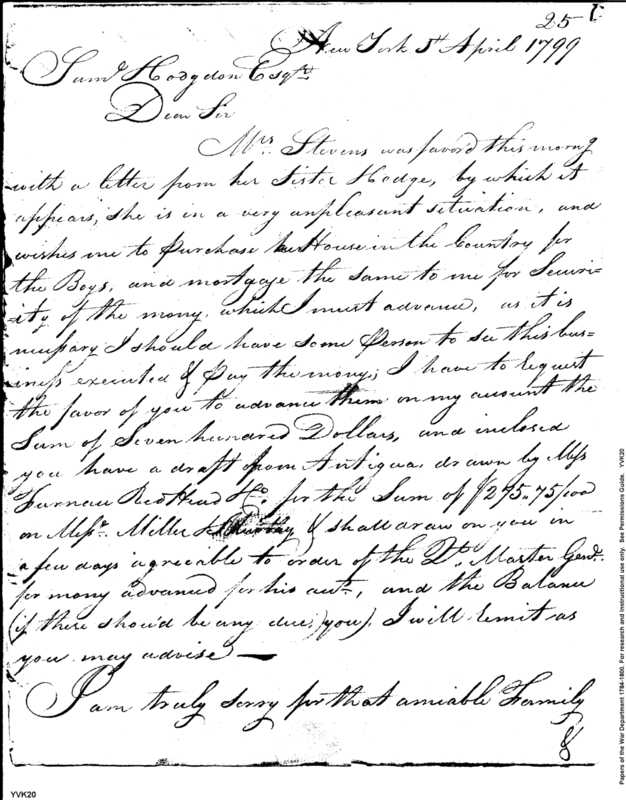 25
New York 5th April 1799
Saml Hodgdon Esqr
Dear Sir
Mrs. Stevens was favord this morng
with a letter from her Sister Hodge, by which it
appears, she is in a very unpleasant situation, and
wishes me to Purchase her House in the Country for
the Boys, and mortgage the same to me for Securi-
ity of the mony which I must advance, as it is
necessary I should have some Person to see this bus-
iness executed & Pay the mony; I have to request
the favor of you to advance them on my account the
Sum of Seven hundred Dollars, and inclosed
you have a draft from Antigua, drawn by Mess
Furneau Red Head & Co. for the Sum of $295.75/100
on Messr. Miller & Murray & shall draw on you in
a few days agreeable to order of the Qr. Master Genl.
for mony advanced for his acct., and the Balance
(if there shou'd be any due you) I will remit as
you may advise —
I am truly sorry for that amiable Family
&
YVK20
Papers of the War Department 1784-1800. For research and instructional use only. See Permissions Guide. YVK20